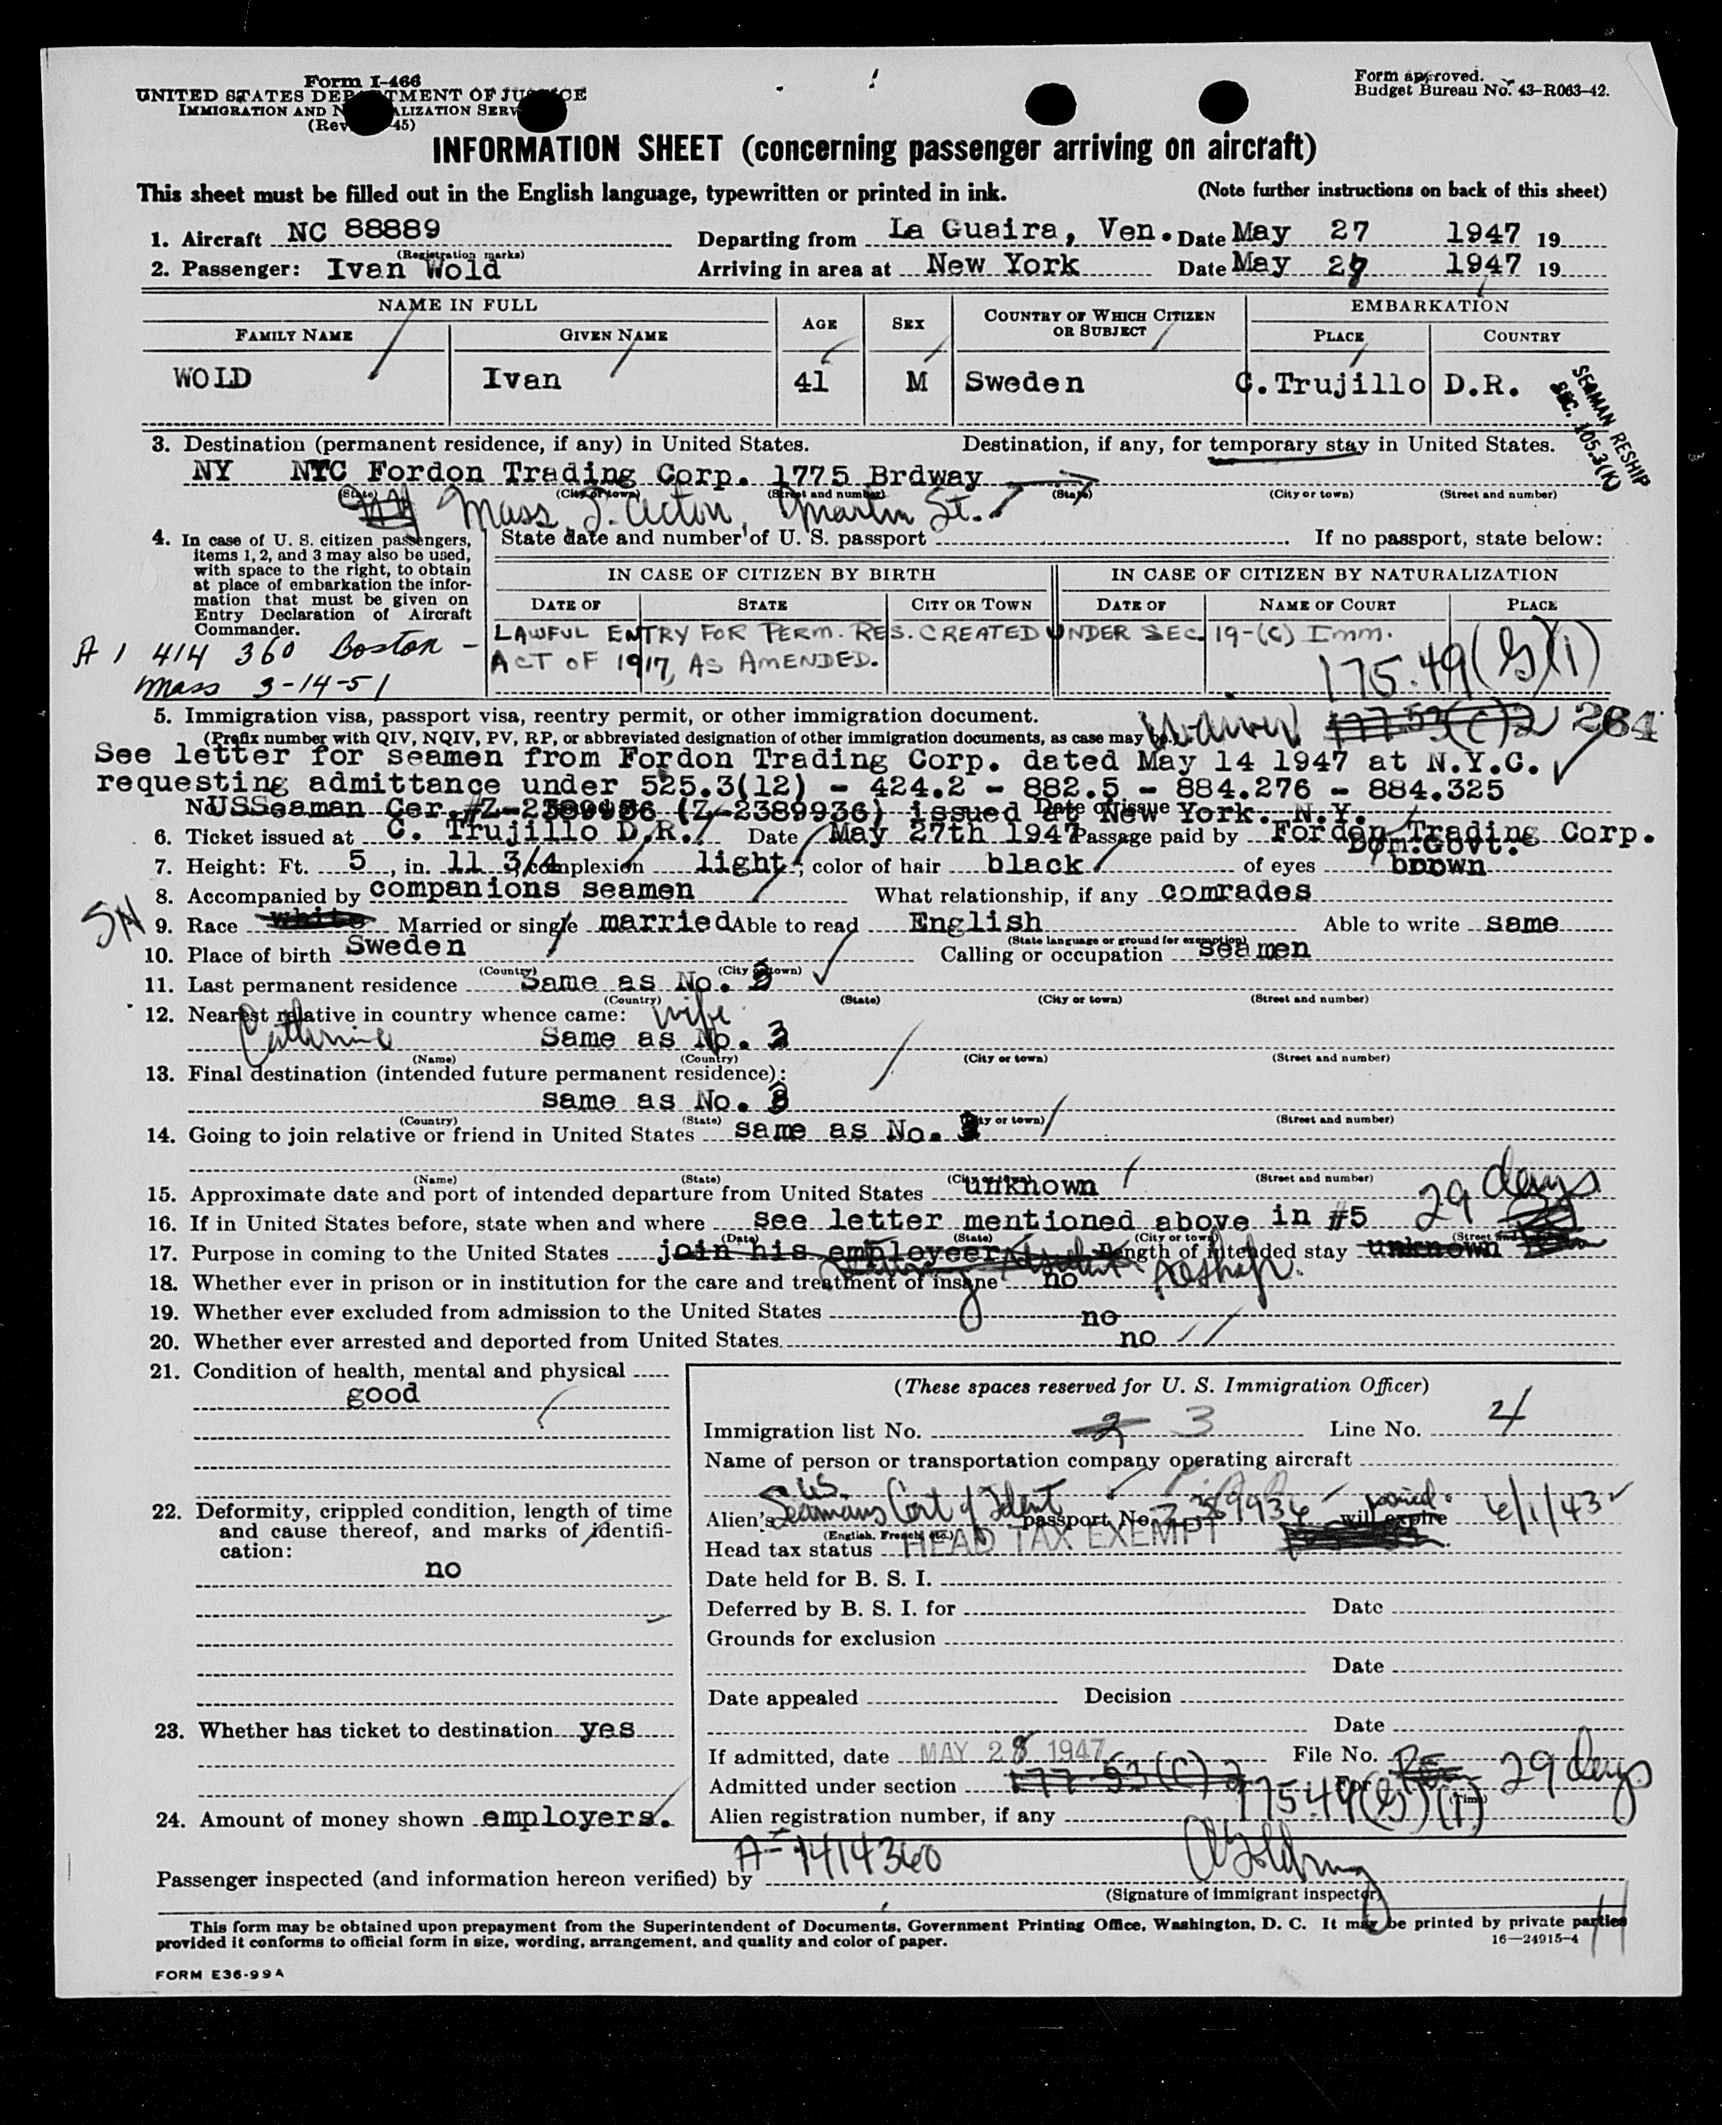 Form I-466
UNITED STATES DEPARTMENT OF JUSTICE
IMMIGRATION AND NATURALIZATION SERV
(Rev. 45)
Form approved.
Budget Bureau No. 43-R063-42.
INFORMATION SHEET (concerning passenger arriving on aircraft)
This sheet must be filled out in the English language, typewritten or printed in ink. (Note further instructions on back of this sheet)
1. Aircraft NC 88889 Departing from La Guaira, Ven. Date May 27 1947 19
(Registration marks)
2. Passenger: Ivan Wold Arriving in area at New York Date May 27 1947 19
NAME IN FULL AGE SEX COUNTRY OF WHICH CITIZEN OR SUBJECT EMBARKATION
FAMILY NAME GIVEN NAME PLACE COUNTRY
WOLD Ivan 41 M Sweden C. Trujillo D.R.
SEAMAN RESHIP
SEC. 105.3(K)
3. Destination (permanent residence, if any) in United States. Destination, if any, for temporary stay in United States.
NY NYC Fordon Trading Corp. 1775 Brdway
(State) (City or town) (Street and number) (State) (City or town) (Street and number)
NY Mass. S. Acton, Martin St.
4. In case of U. S. citizen passengers, items 1, 2, and 3 may also be used, with space to the right, to obtain at place of embarkation the information that must be given on Entry Declaration of Aircraft Commander.
State date and number of U. S. passport If no passport, state below:
IN CASE OF CITIZEN BY BIRTH IN CASE OF CITIZEN BY NATURALIZATION
DATE OF STATE CITY OR TOWN DATE OF NAME OF COURT PLACE
LAWFUL ENTRY FOR PERM. RES. CREATED UNDER SEC. 19-(C) IMM.
ACT OF 1917, AS AMENDED.
A 1 414 360 Boston -
Mass 3-14-51
175.49(G)(1)
5. Immigration visa, passport visa, reentry permit, or other immigration document.
(Prefix number with QIV, NQIV, PV, RP, or abbreviated designation of other immigration documents, as case may be.)
177.53(C)2 264
See letter for seamen from Fordon Trading Corp. dated May 14 1947 at N.Y.C.
requesting admittance under 525.3(12) - 424.2 - 882.5 - 884.276 - 884.325
USSeaman Cer.#Z-2389936 (Z-2389936) issued at New York. N.Y.
Date of issue
6. Ticket issued at C. Trujillo D.R. Date May 27th 1947 Passage paid by Fordon Trading Corp.
Dom.Govt.
7. Height: Ft. 5, in. 11 3/4 complexion light; color of hair black of eyes brown
8. Accompanied by companions seamen What relationship, if any comrades
SN
9. Race white Married or single married Able to read English Able to write same
(State language or ground for exemption)
10. Place of birth Sweden Calling or occupation seamen
(Country) (City or town)
11. Last permanent residence Same as No. 3
(Country) (State) (City or town) (Street and number)
12. Nearest relative in country whence came: wife
Catherine Same as No. 3
(Name) (Country) (City or town) (Street and number)
13. Final destination (intended future permanent residece):
same as No. 3
(Country) (State) (City or town) (Street and number)
14. Going to join relative or friend in United States same as No. 3
(Name) (State) (City or town) (Street and number)
15. Approximate date and port of intended departure from United States unknown
29 days
16. If in United States before, state when and where see letter mentioned above in #5
(Date) (State) (City or town) (Street and number)
17. Purpose in coming to the United States join his employeer Length of intended stay unknown
Reship.
18. Whether ever in prison or in institution for the care and treatment of insane no
19. Whether ever excluded from admission to the United States no
20. Whether ever arrested and deported from United States. no
21. Condition of health, mental and physical
good
22. Deformity, crippled condition, length of time and cause thereof, and marks of identification:
no
23. Whether has ticket to destination yes
24. Amount of money shown employers.
(These spaces reserved for U. S. Immigration Officer)
Immigration list No. 2 3 Line No. 4
Name of person or transportation company operating aircraft
U.S.
Alien's Seamans Cert of Ident passport No. 2389936 will expire issued 6/1/43
(English, French, etc.)
Head tax status HEAD TAX EXEMPT
Date held for B. S. I.
Deferred by B. S. I. for Date
Grounds for exclusion
Date
Date appealed Decision
Date
If admitted, date MAY 28 1947 File No.
Admitted under section 177-53(C)2 For 29 days
(Time)
175.49(G)(1)
Alien registration number, if any
A-1414360
Passenger inspected (and information hereon verified) by
(Signature of immigrant inspector)
This form may be obtained upon prepayment from the Superintendent of Documents, Government Printing Office, Washington, D. C. It may be printed by private parties
provided it conforms to official form in size, wording, arrangement, and quality and color of paper.
16—24915-4
FORM E36-99A